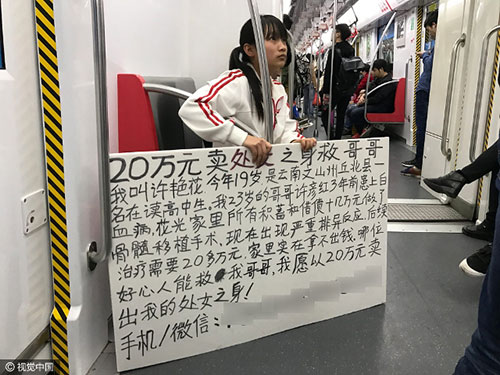 20万元卖处女之身救哥哥
我叫许艳花今年19岁是云南文山州丘北县一
名在读高中生，我23岁的哥哥许彦红3年前患上白
血病，花光家里所有积蓄和借债十几万元做了
骨髓移植手术，现在出现严重排异反应，后续
治疗需要20多万元，家里实在拿不出钱，哪位
好心人能救我哥哥，我愿以20万元卖
出我的处女之身！
手机/微信：
©视觉中国